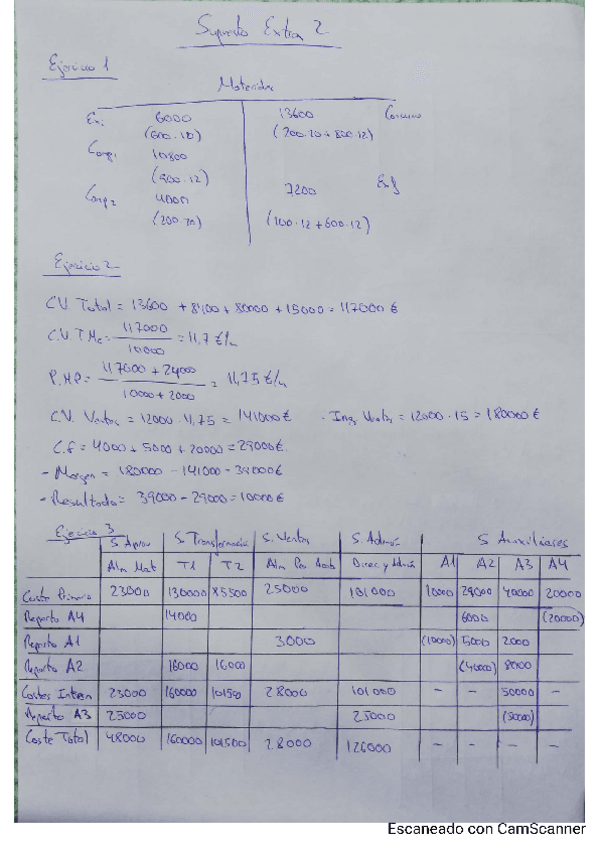 Supuesto Extra 2
Ejercicio 1
Materiales
Ex: 6000 13600 Consumo
(600·10) (200·20+800·12)
Comp1 10800
(900·12) 7200 Exf
Comp2 4000
(200·20) (100·12+600·12)
Ejercicio 2
C.V. Total = 13600 + 8400 + 80000 + 15000 = 117000 €
C.V.T Mc = 117000 / 10000 = 11,7 €/u
P.M.P = 117000 + 24000 / 10000 + 2000 = 11,75 €/u
C.V. Ventas = 12000 · 11,75 = 141000 € · Ing Ventas = 12000 · 15 = 180000 €
C.F = 4000 + 5000 + 20000 = 29000 €
- Margen = 180000 - 141000 = 39000 €
- Resultado = 39000 - 29000 = 10000 €
Ejercicio 3
S. Aprov S. Transformación S. Ventas S. Admón S Auxiliares
Alm Mat T1 T2 Alm Direc y Admón A1 A2 A3 A4
Coste Primario 23000 130000 85500 25000 101000 10000 29000 40000 20000
Reparto A4 14000 6000 (20000)
Reparto A1 3000 (10000) 5000 2000
Reparto A2 16000 16000 (40000) 8000
Costes Interm 23000 160000 101500 28000 101000 - - 50000 -
Reparto A3 25000 25000 (50000)
Coste Total 48000 160000 101500 28000 126000 - - - -
Escaneado con CamScanner